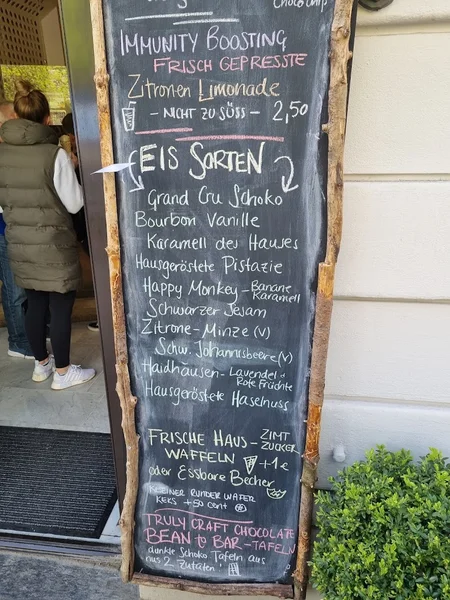 Choco Chip
IMMUNITY BOOSTING
FRISCH GEPRESSTE
Zitronen Limonade
- NICHT ZU SÜSS - 2,50
EIS SORTEN
Grand Cru Schoko
Bourbon Vanille
Karamell des Hauses
Hausgeröstete Pistazie
Happy Monkey - Banane
Karamell
Schwarzer Sesam
Zitrone - Minze (V)
Schw. Johannisbeere (V)
Haidhausen - Lavendel +
Rote Früchte
Hausgeröstete Haselnuss
FRISCHE HAUS - ZIMT
ZUCKER
WAFFELN +1€
oder Essbare Becher
KLEINER RUNDER WAFER
KEKS +50 cent
TRULY CRAFT CHOCOLATE
BEAN to BAR - TAFELN
dunkle Schoko Tafeln aus
nur 2 Zutaten!